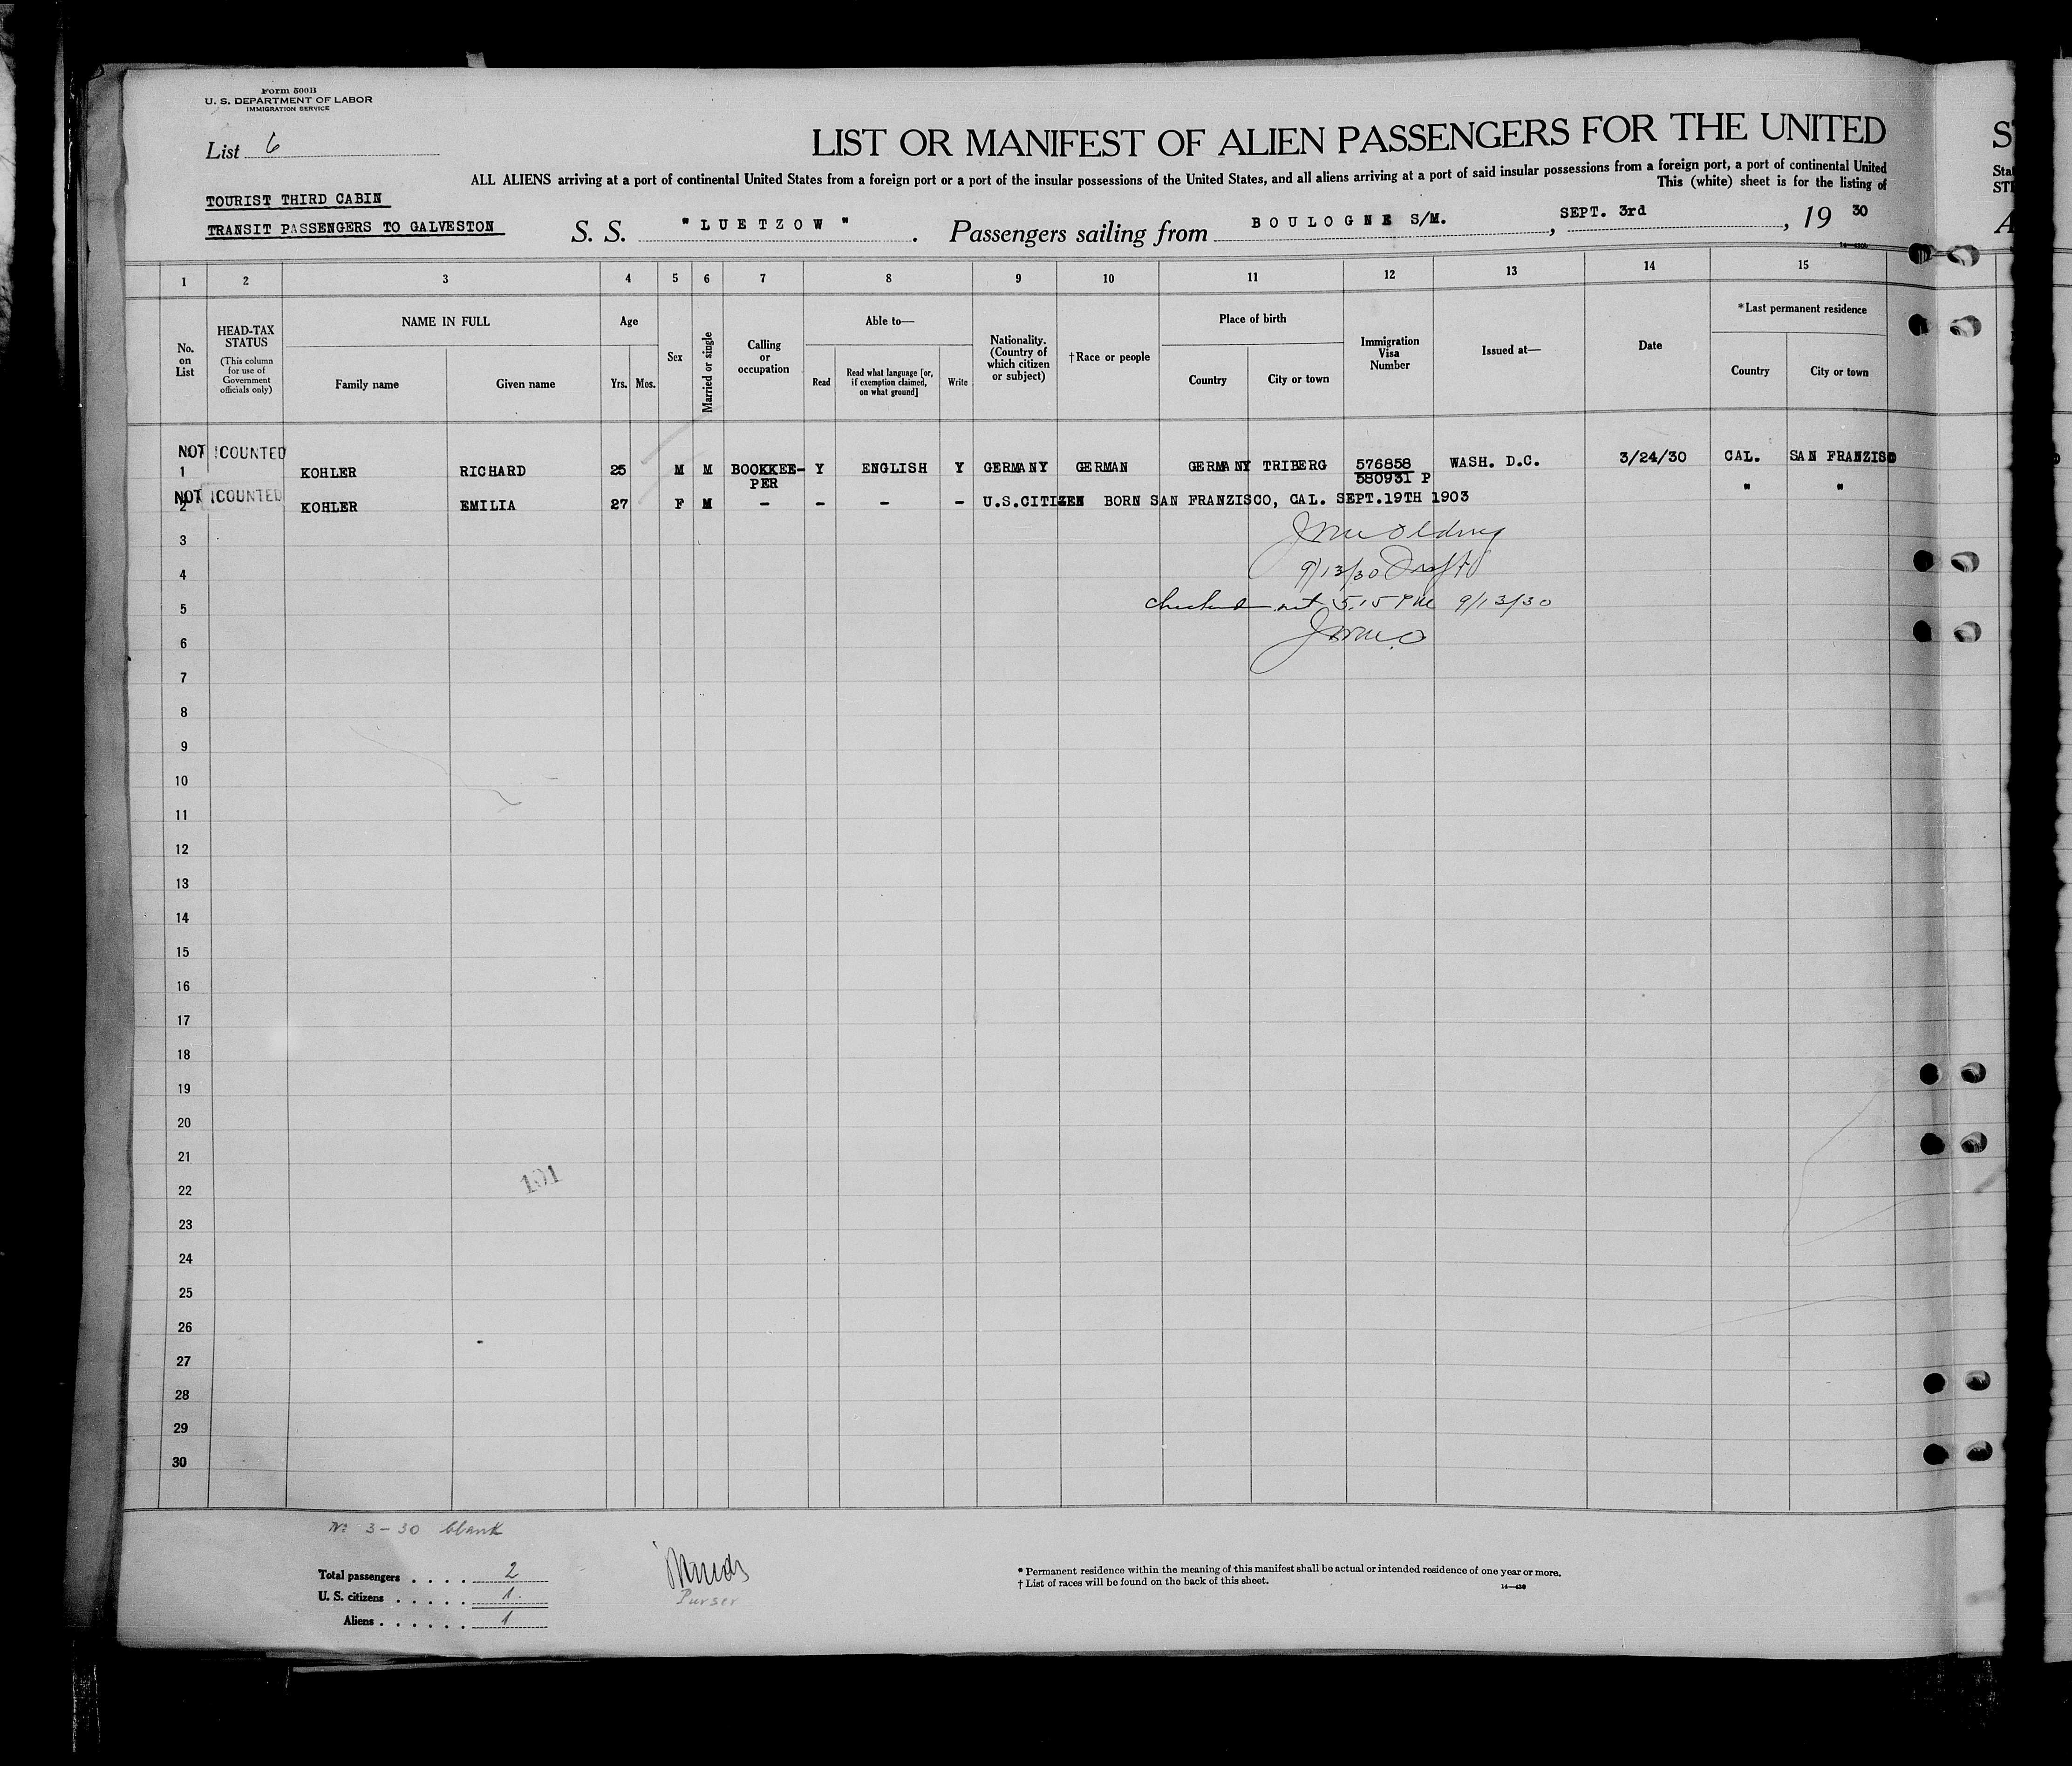 Form 500B
U. S. DEPARTMENT OF LABOR
IMMIGRATION SERVICE
List 6
LIST OR MANIFEST OF ALIEN PASSENGERS FOR THE UNITED
ALL ALIENS arriving at a port of continental United States from a foreign port or a port of the insular possessions of the United States, and all aliens arriving at a port of said insular possessions from a foreign port, a port of continental United
This (white) sheet is for the listing of
TOURIST THIRD CABIN
TRANSIT PASSENGERS TO GALVESTON
S. S. "LUETZOW". Passengers sailing from BOULOGNE S/M., SEPT. 3rd, 19 30
1 2 3 4 5 6 7 8 9 10 11 12 13 14 15
No. on List
HEAD-TAX STATUS
(This column for use of Government officials only)
NAME IN FULL
Family name
Given name
Age
Yrs.
Mos.
Sex
Married or single
Calling or occupation
Able to—
Read
Read what language [or, if exemption claimed, on what ground]
Write
Nationality. (Country of which citizen or subject)
†Race or people
Place of birth
Country
City or town
Immigration Visa Number
Issued at—
Date
*Last permanent residence
Country
City or town
NOT COUNTED
1 KOHLER RICHARD 25 M M BOOKKEE- Y ENGLISH Y GERMANY GERMAN GERMANY TRIBERG 576858 WASH. D.C. 3/24/30 CAL. SAN FRANZISO
PER 580931 P
NOT COUNTED
2 KOHLER EMILIA 27 F M - - - - U.S.CITIZEN BORN SAN FRANZISCO, CAL. SEPT.19TH 1903 " "
3
9/13/30
4
5:15 PM 9/13/30
5
6
7
8
9
10
11
12
13
14
15
16
17
18
19
20
21
101
22
23
24
25
26
27
28
29
30
No 3-30 blank
Total passengers . . . . 2
U. S. citizens . . . . . 1
Aliens . . . . . . 1
Purser
* Permanent residence within the meaning of this manifest shall be actual or intended residence of one year or more.
† List of races will be found on the back of this sheet.
14—430